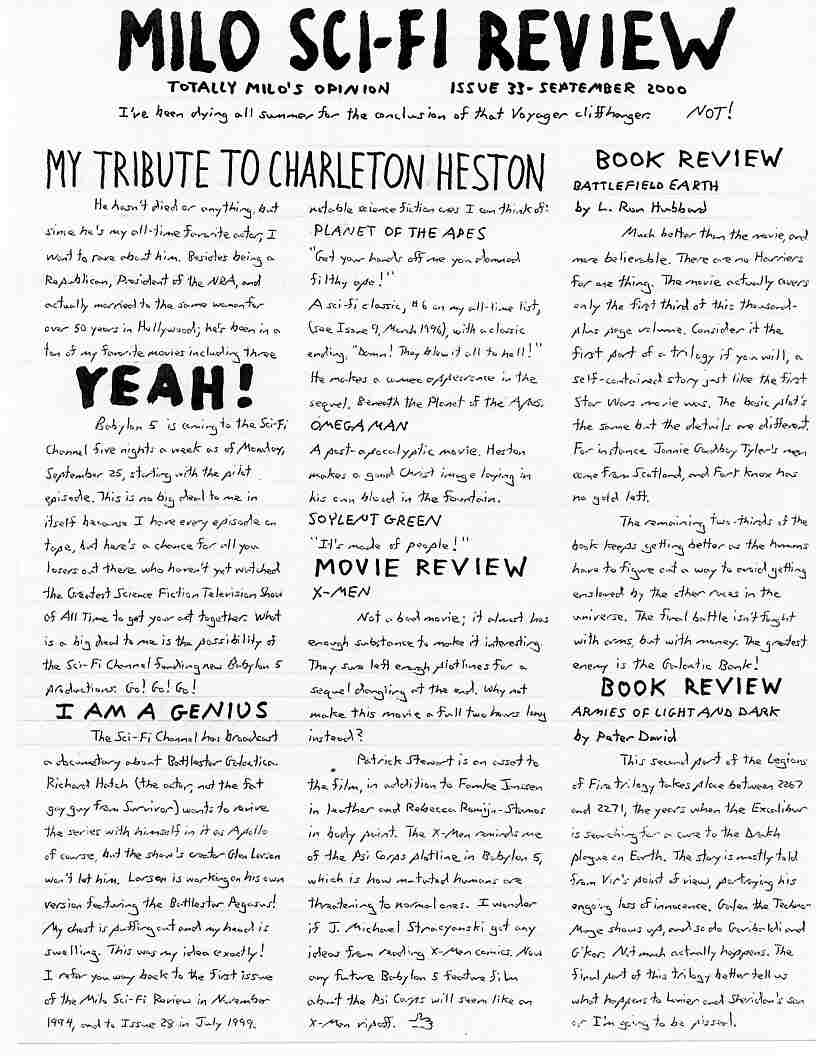 MILO SCI-FI REVIEW
TOTALLY MILO'S OPINION ISSUE 33 - SEPTEMBER 2000
I've been dying all summer for the conclusion of that Voyager cliffhanger. NOT!
MY TRIBUTE TO CHARLETON HESTON
He hasn't died or anything, but
since he's my all-time favorite actor, I
want to rave about him. Besides being a
Republican, President of the NRA, and
actually married to the same woman for
over 50 years in Hollywood; he's been in a
ton of my favorite movies including three
notable science fiction ones I can think of:
PLANET OF THE APES
"Get your hands off me you damned
filthy ape!"
A sci-fi classic, #6 on my all-time list,
(see Issue 9, March 1996), with a classic
ending. "Damn! They blew it all to hell!"
He makes a cameo appearance in the
sequel, Beneath the Planet of the Apes.
OMEGA MAN
A post-apocalyptic movie. Heston
makes a good Christ image laying in
his own blood in the fountain.
SOYLENT GREEN
"It's made of people!"
YEAH!
Babylon 5 is coming to the Sci-Fi
Channel five nights a week as of Monday,
September 25, starting with the pilot
episode. This is no big deal to me in
itself because I have every episode on
tape, but here's a chance for all you
losers out there who haven't yet watched
the Greatest Science Fiction Television Show
of All Time to get your act together. What
is a big deal to me is the possibility of
the Sci-Fi Channel funding new Babylon 5
productions. Go! Go! Go!
I AM A GENIUS
The Sci-Fi Channel has broadcast
a documentary about Battlestar Galactica.
Richard Hatch (the actor, not the fat
gay guy from Survivor) wants to revive
the series with himself in it as Apollo
of course, but the show's creator Glen Larson
won't let him. Larson is working on his own
version featuring the Battlestar Pegasus!
My chest is puffing out and my head is
swelling. This was my idea exactly!
I refer you way back to the first issue
of the Milo Sci-Fi Review in November
1994, and to Issue 28 in July 1999.
MOVIE REVIEW
X-MEN
Not a bad movie; it almost has
enough substance to make it interesting.
They sure left enough plotlines for a
sequel dangling at the end. Why not
make this movie a full two hours long
instead?
Patrick Stewart is an asset to
the film, in addition to Famke Janssen
in leather and Rebecca Romijn-Stamos
in body paint. The X-Men reminds me
of the Psi Corps plotline in Babylon 5,
which is how mutated humans are
threatening to normal ones. I wonder
if J. Michael Straczynski got any
ideas from reading X-Men comics. Now
any future Babylon 5 feature film
about the Psi Corps will seem like an
X-Men ripoff.
BOOK REVIEW
BATTLEFIELD EARTH
by L. Ron Hubbard
Much better than the movie, and
more believable. There are no Harriers
for one thing. The movie actually covers
only the first third of this thousand-
plus page volume. Consider it the
first part of a trilogy if you will, a
self-contained story just like the first
Star Wars movie was. The basic plot's
the same but the details are different.
For instance Jonnie Goodboy Tyler's men
come from Scotland, and Fort Knox has
no gold left.
The remaining two-thirds of the
book keeps getting better as the humans
have to figure out a way to avoid getting
enslaved by the other races in the
universe. The final battle isn't fought
with arms, but with money. The greatest
enemy is the Galactic Bank!
BOOK REVIEW
ARMIES OF LIGHT AND DARK
by Peter David
This second part of the Legions
of Fire trilogy takes place between 2267
and 2271, the years when the Excalibur
is searching for a cure to the Drakh
plague on Earth. The story is mostly told
from Vir's point of view, portraying his
ongoing loss of innocence. Galen the Techno-
Mage shows up, and so do Garibaldi and
G'Kar. Not much actually happens. The
final part of this trilogy better tell us
what happens to Lenier and Sheridan's son
or I'm going to be pissed.